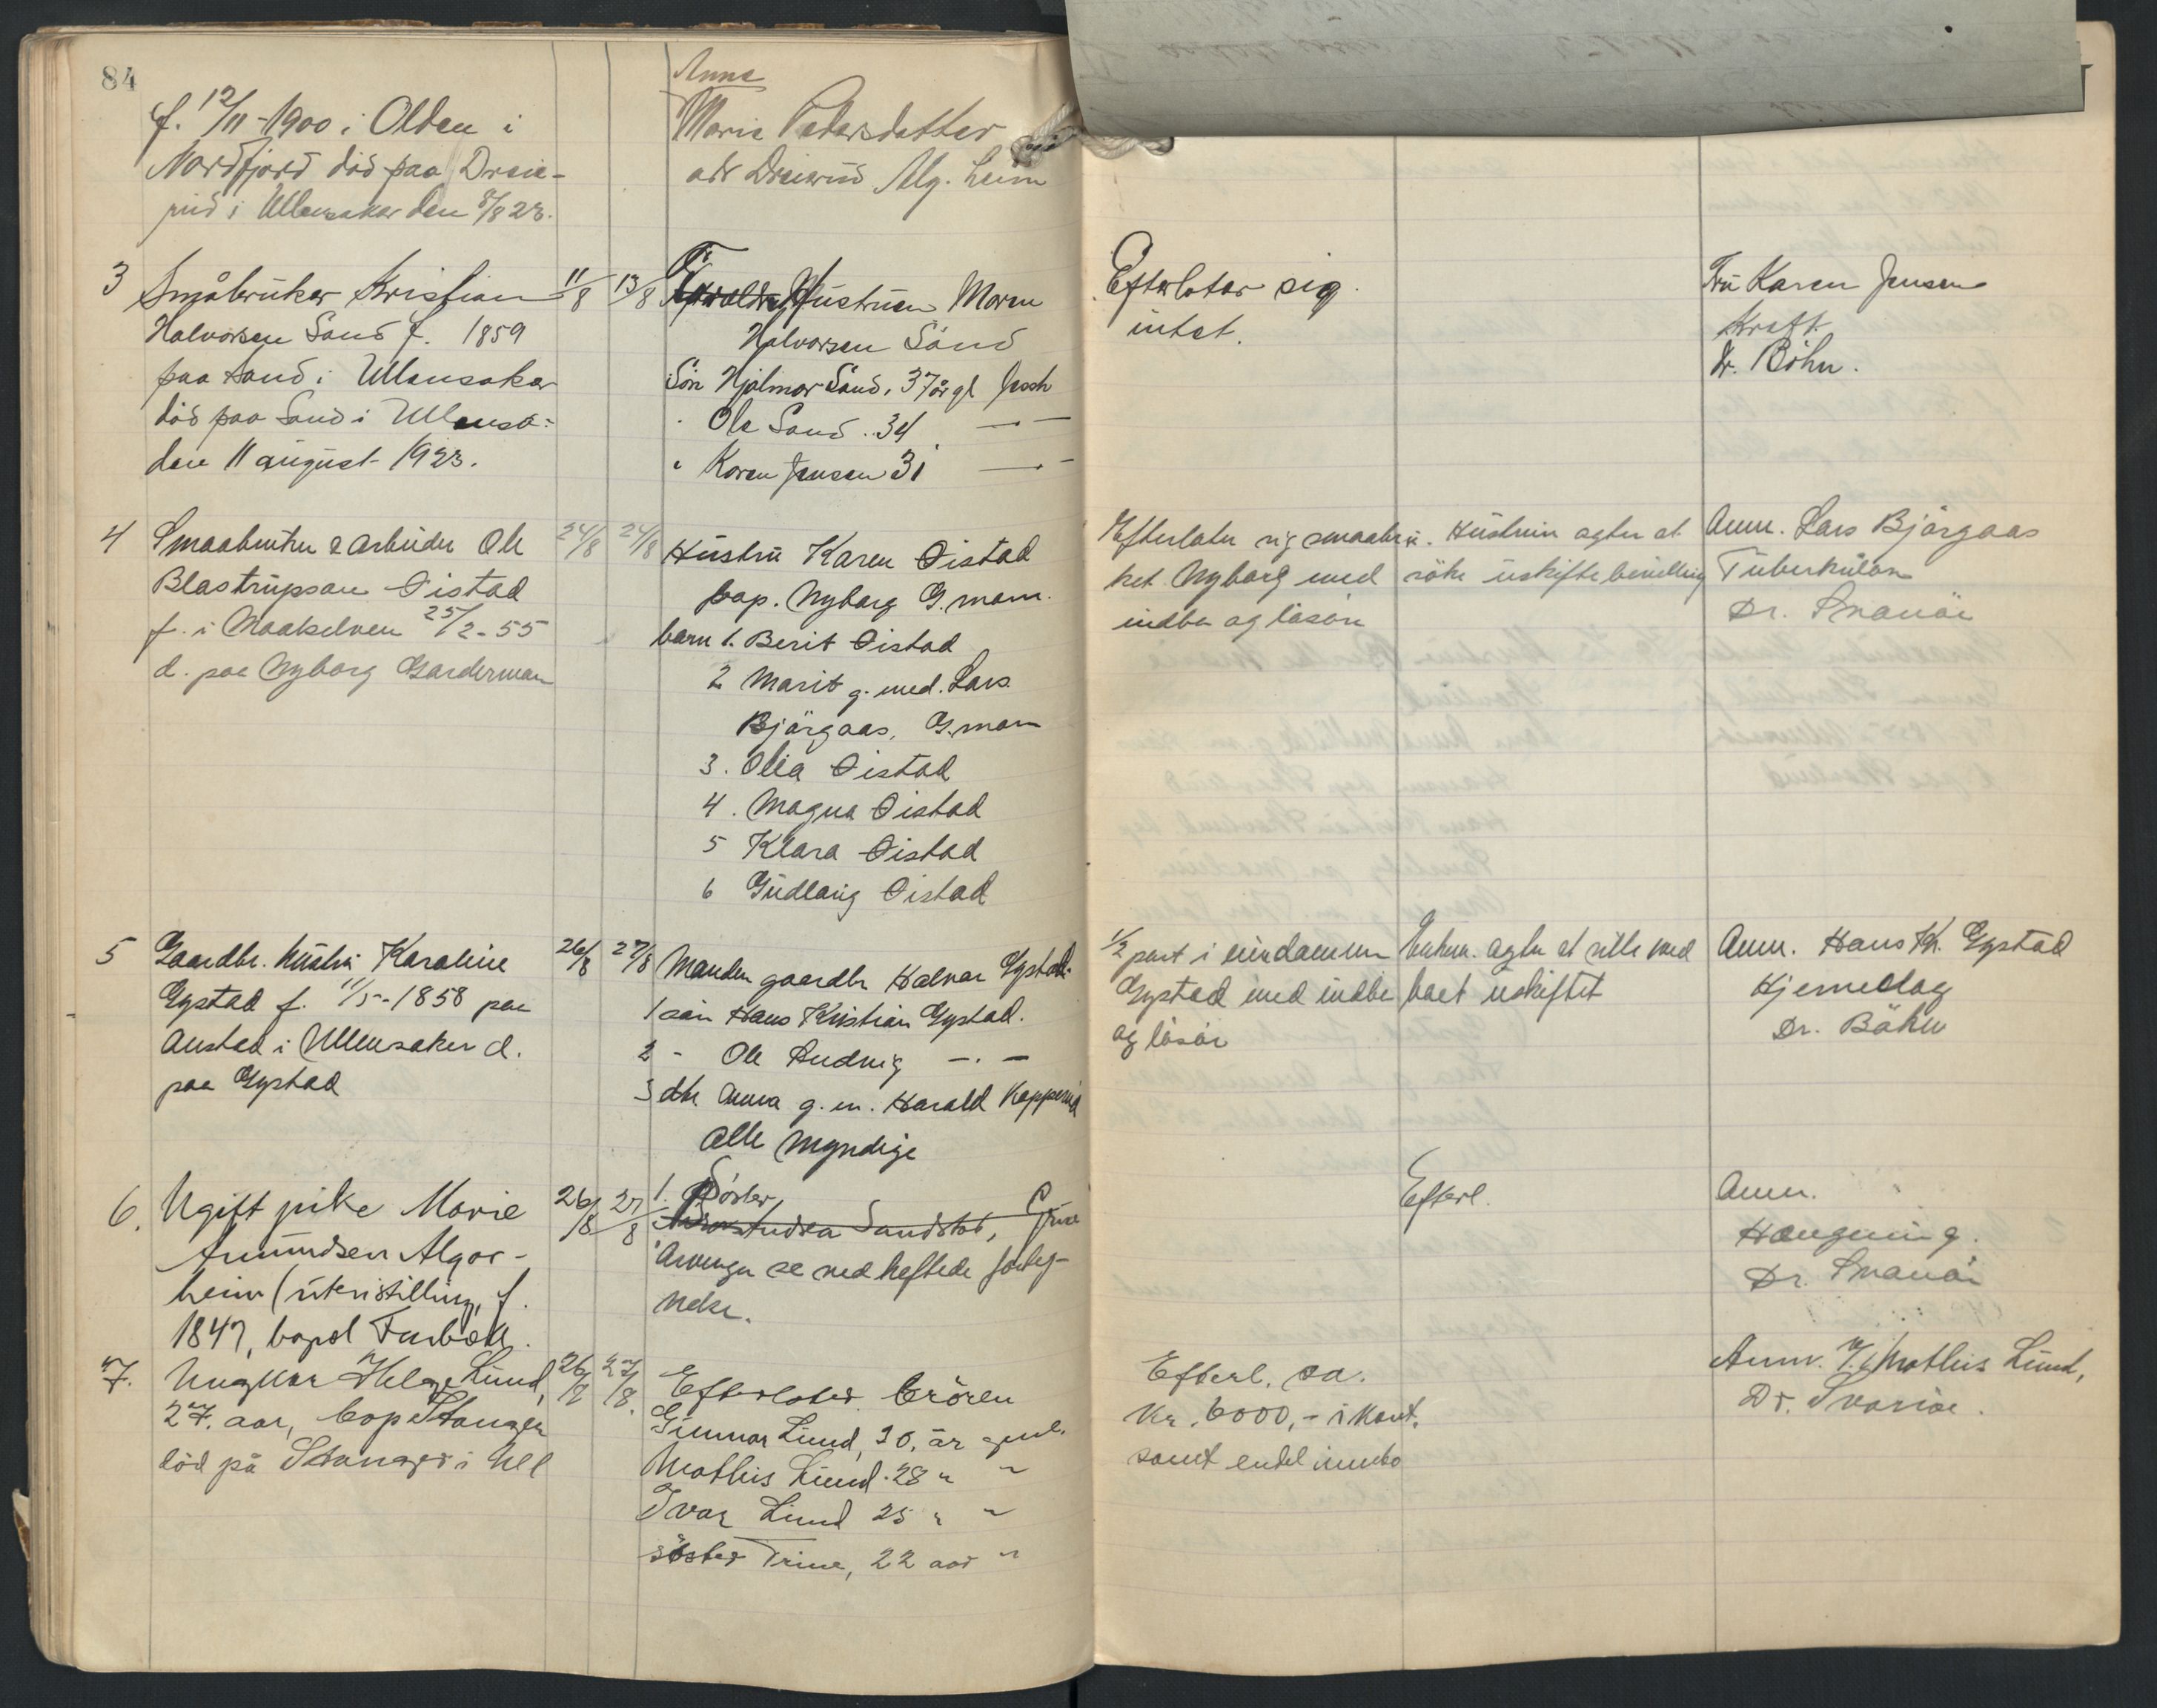 84
f. 12/11-1900 i Olden i
Nordfjord död paa Dreie-
rud i Ullensaker den /8 23.
Anna
Marie Pedersdatter
adr Dreierud Alg. heim
3 Småbruker Kristian 11/8 13/8
Halvorsen Sand f. 1859
paa Sand i Ullensaker
död paa Sand i Ullensa:
den 11 august 1923.
Hustruen Maren
Halvorsen Sand
Sön Hjalmar Sand. 37 år gl Jessh
Ole Sand .. 34 — " —
" Karen Jensen 31 — " —
Efterlater sig
intet.
Fru Karen Jensen
Kræft.
Dr. Böhn.
4 Smaabruker & arbeider Ole 24/8 24/8
Blastrupson Øistad
f. i Maaselven 25/2-55
d. paa Nyborg Gardermoen
Hustru Karen Øistad
bop. Nyborg G.moen.
barn 1. Berit Øistad
2 Marit g. med. Lars
Bjørgaas, G.moen
3. Olea Øistad
4. Magna Øistad
5 Klara Øistad
6 Gudlaug Øistad
Efterlater sig smaabru-
ket Nyborg med
indbo og lösöre
Hustruen agter at
söke uskiftebevilling
Anm. Lars Bjørgaas
Tuberkulose
Dr. Svanöe
5 Gaardbr. hustru Karoline 26/8 27/8
Gystad f. 11/5-1858 paa
Austad i Ullensaker d.
paa Gystad
Manden gaardbr Halvor Gystad.
1 sön Hans Kristian Gystad.
2 - Ole Ludvig — . —
3 dtr Anna g. m. Harald Kopperud
Alle Myndige
1/2 part i eiendommen
Gystad med indbo
og lösöre
Enkem. agter at sitte med
boet uskiftet
Anm. Hans Kr. Gystad
Hjerneslag
Dr. Böhn
6. Ugift pike Marie 26/8 27/8
Amundsen Algar-
heim (uten stilling, f.
1847, bopæl Furbakk.
1. Söster
Andrea Sandstad, Grue
Arvinger se vedheftede forteg-
nelse.
Efterl.
Anm.
Hængning.
Dr. Svanöe
7. Ungkar Helge Lund, 26/8 27/8.
27. aar, bop Stanger
död på Stanger i Ull
Efterlater brören
Gunnar Lund, 30, år gml.
Mathis Lund. 28 " "
Ivar Lund 25 " "
söster Trine, 22 aar "
Efterl. ca.
Kr. 6000,- i kont.
samt endel innbo
Anm. Mathis Lund,
Dr. Svanöe.